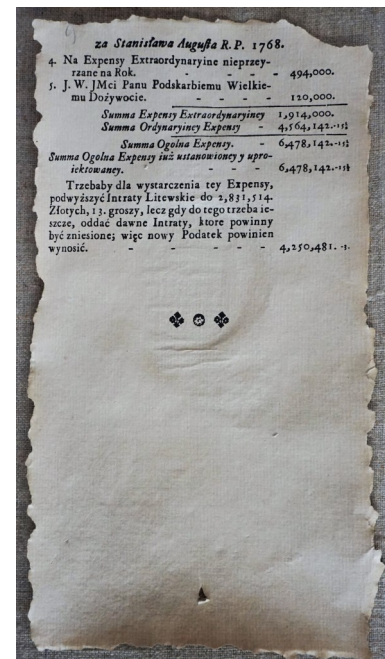 za Stanisława Augusta R. P. 1768.
4. Na Expensy Extraordynaryine nieprzey-
rzane na Rok. - - - - 494,000.
5. J. W. JMci Panu Podskarbiemu Wielkie-
mu Dożywocie. - - - - 120,000.
Summa Expensy Extraordynaryiney 1,914,000.
Summa Ordynaryiney Expensy - 4,564,142.-15½
Summa Ogolna Expensy. - - 6,478,142.-15½
Summa Ogolna Expensy iuż ustanowioney y upro-
iektowaney. - - - - 6,478,142.-15½
Trzebaby dla wystarczenia tey Expensy,
podwyższyć Intraty Litewskie do 2,831,514.
Złotych, 13. groszy, lecz gdy do tego trzeba ie-
szcze, oddać dawne Intraty, ktore powinny
być zniesione; więc nowy Podatek powinien
wynosić. - - - - - - 4,250,481. -3.